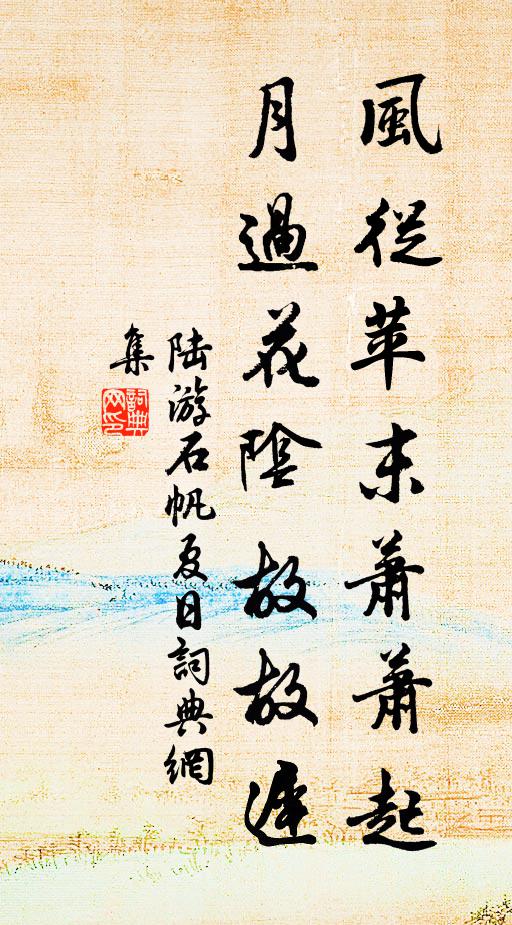 風從苹末蕭蕭起
月過花陰故故遲
陸游石帆夏日詞典網
集
詞典
网印